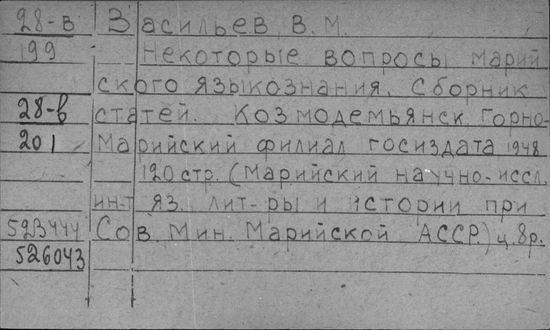 28-в Васильев В.М.
199 Некоторые вопросы марий
ского языкознания. Сборник
28-в статей. Козмодемьянск Горно-
201 Марийский филиал госиздата 1948
120 стр. (Марийский научно-иссл.
ин-т яз. лит-ры и истории при
523444 Сов Мин. Марийской АССР.) ц. 8р.
526043